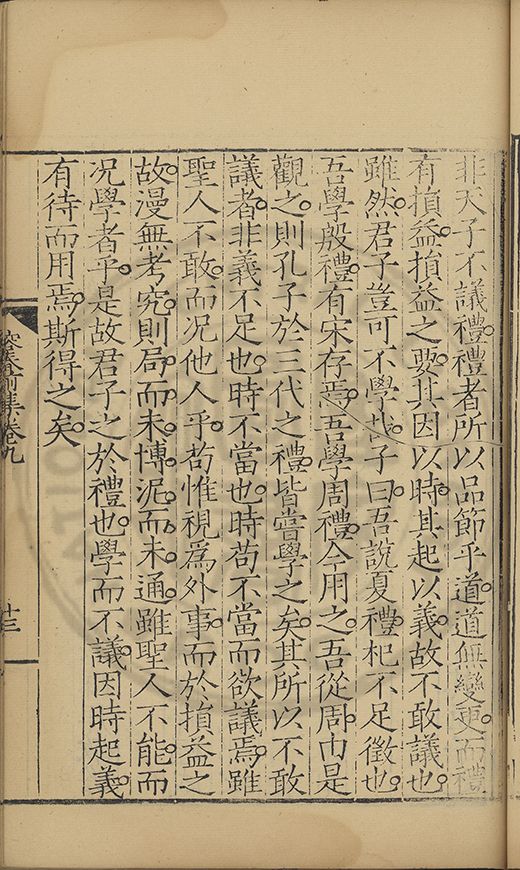 非天子不議禮禮者所以品節乎道道無變更而禮
有損益損益之要其因以時其起以義故不敢議也
雖然君子豈可不學哉子曰吾說夏禮杞不足徵也
吾學殷禮有宋存焉吾學周禮今用之吾從周由是
觀之則孔子於三代之禮皆嘗學之矣其所以不敢
議者非義不足也時不當也時苟不當而欲議焉雖
聖人不敢而况他人乎苟惟視爲外事而於損益之
故漫無考究則局而未博泥而未通雖聖人不能而
况學者乎是故君子之於禮也學而不議因時起義
有待而用焉斯得之矣
前集卷九
十三